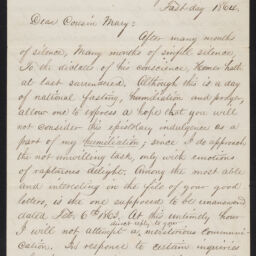 Fast-day 1864.
Dear Cousin Mary:
After many months
of silence, Many months of sinful silence,
To the dictates of his conscience, Homer hath
at last surrendered. Although this is a day
of national fasting, humiliation and prayer,
allow one to express a hope that you will
not consider this epistolary indulgence as a
part of my humiliation; since I do approach
the not unwilling task, only with emotions
of rapturous delight. Among the most able
and interesting on the file of your good
letters, is the one supposed to be unanswered
dated Feb. 6th 1863. At this untimely hour
direct reply to your
I will not attempt a meritorious communi-
cation. In response to certain inquiries